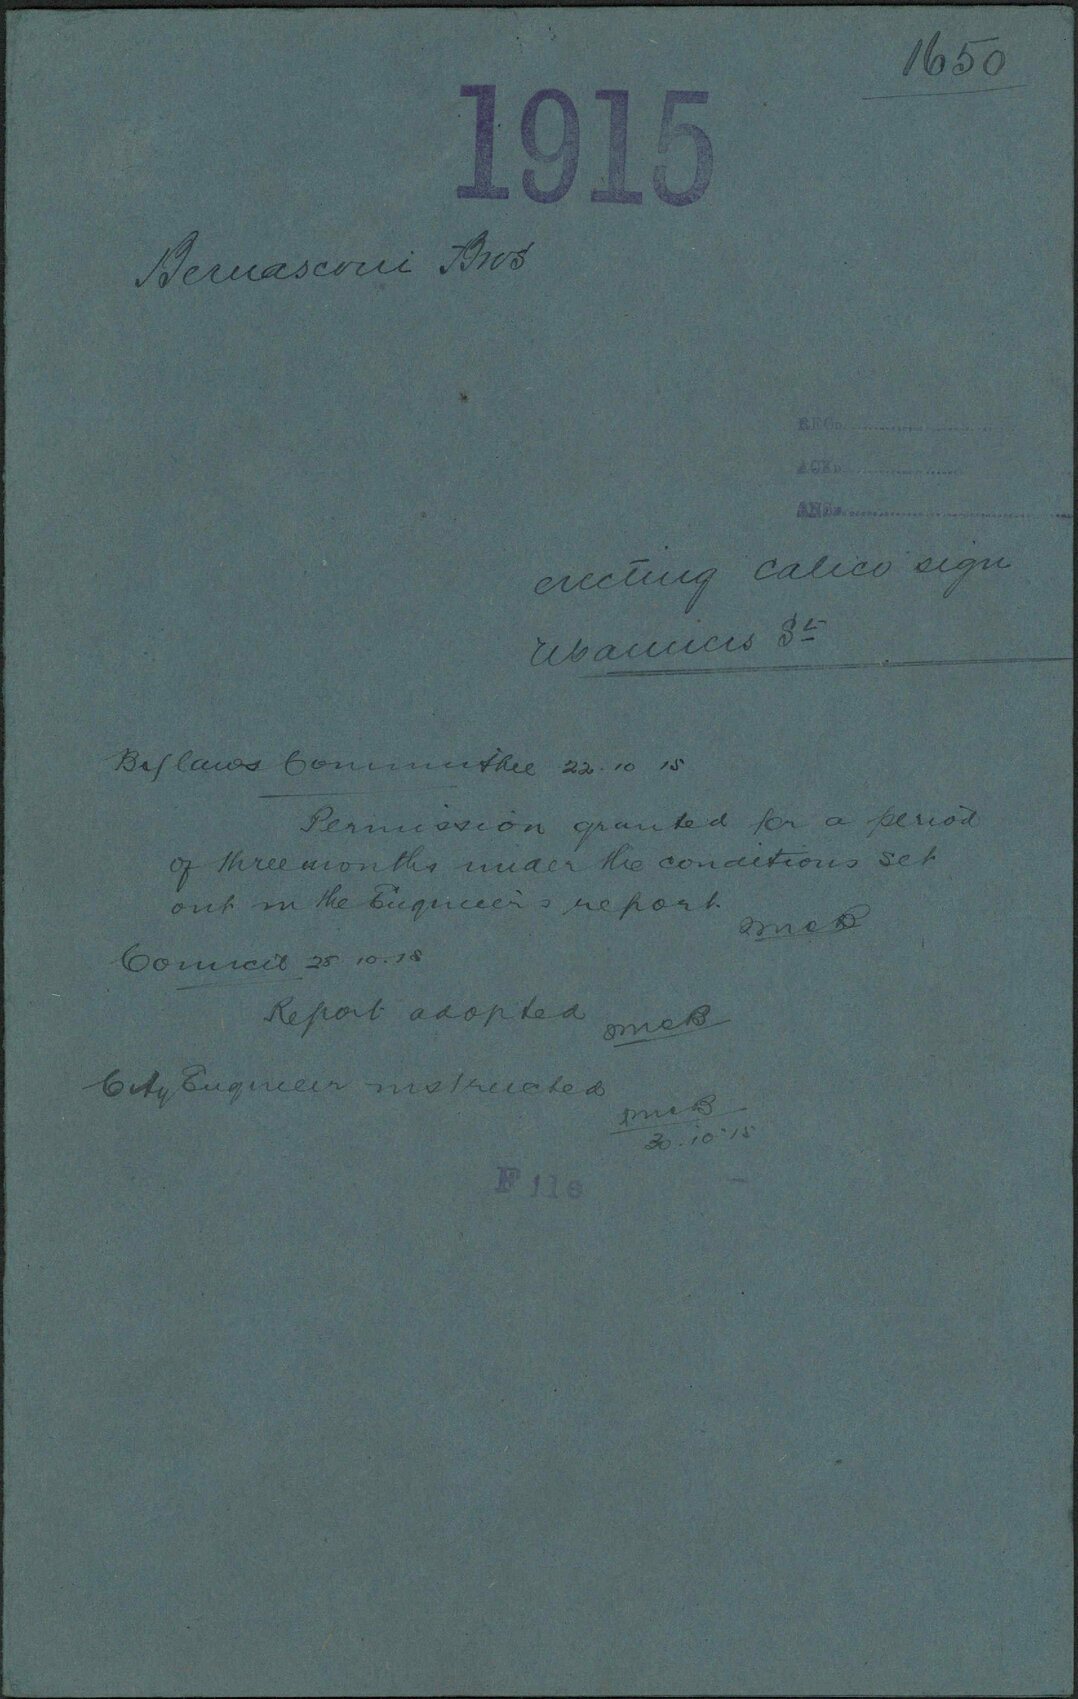 1650
1915
Bernasconi Bros
REC.
ACK.
ANS.
erecting calico sign
Manners St
Bylaws Committee 22.10 15
Permission granted for a period
of three months under the conditions set
out in the Engineer's report
Council 28 10.15
Report adopted
City Engineer instructed
30.10.15
File